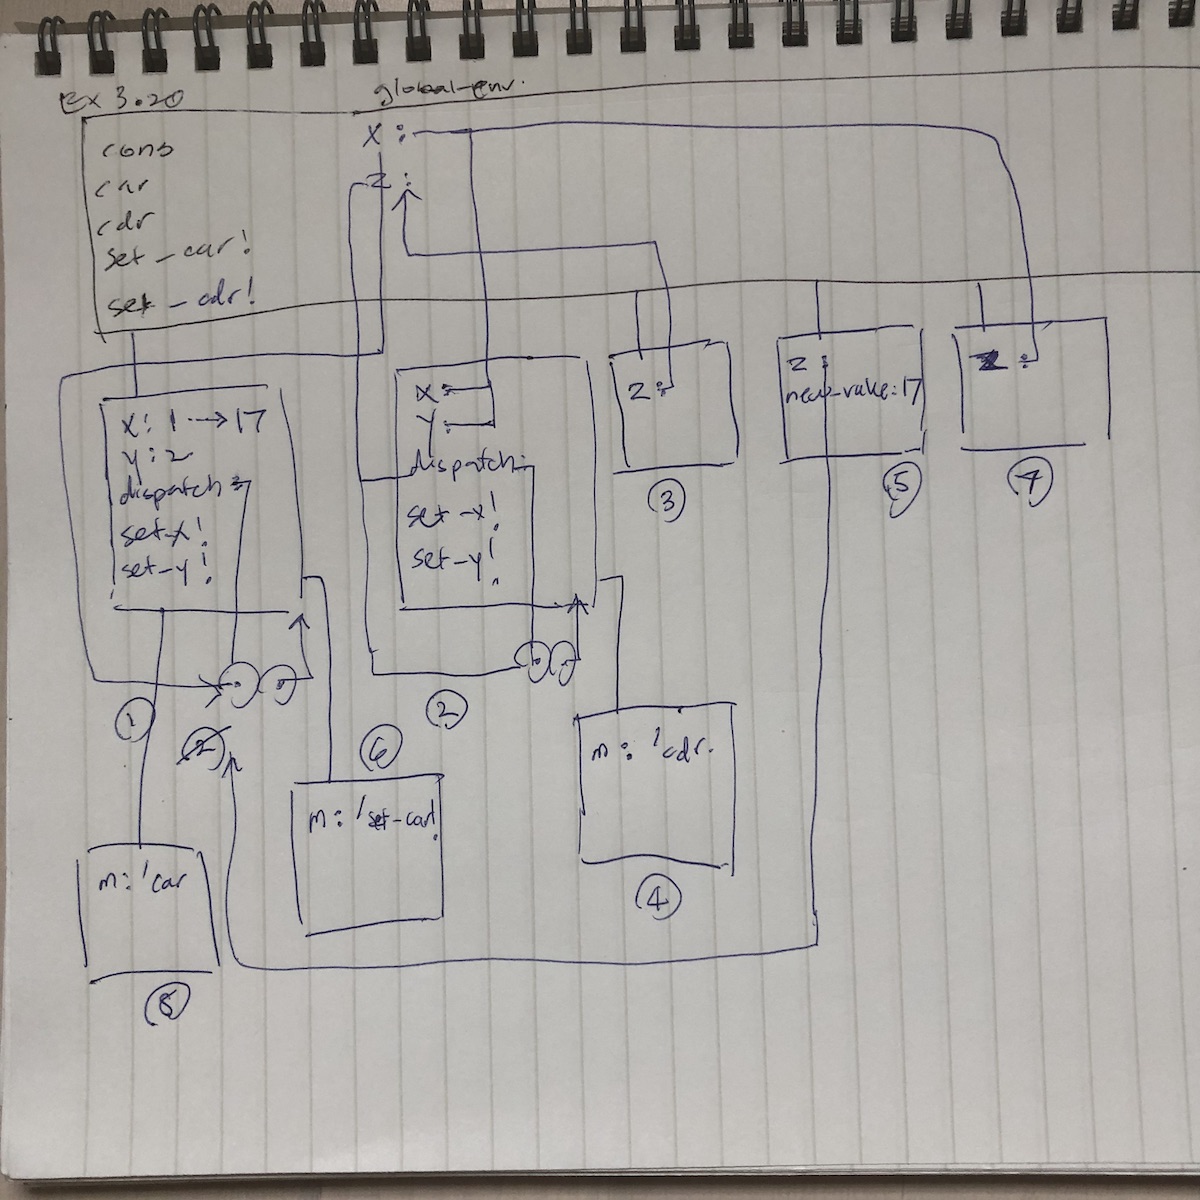 Ex 3.20
global-env.
cons
car
cdr
set-car!
set-cdr!
x :
z :
x : 1 → 17
y : 2
dispatch :
set-x!
set-y!
1
2
x :
y :
dispatch :
set-x!
set-y!
2
z :
3
z :
new-value : 17
5
z :
7
m : 'set-car!
6
m : 'cdr.
4
m : 'car
8